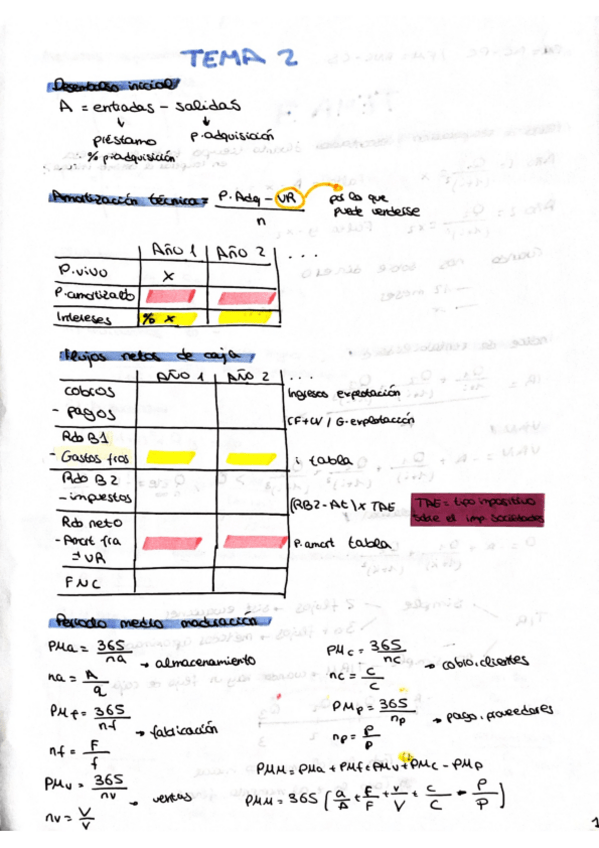 TEMA 2
Desembolso inicial
A = entradas - salidas
↓ ↓
préstamo p. adquisición
% p. adquisición
Amortización técnica = P. Adq - VR / n
por lo que puede venderse
Año 1 | Año 2 | ...
P. vivo | x
P. amortizado
Intereses | % x
Flujos netos de caja
AÑO 1 | AÑO 2 | ...
cobros Ingresos explotación
- pagos CF+CV / G. explotación
Rdo B1
- Gastos fros i tabla
Rdo B2
- impuestos (RB2 - At) x TAE
TAE = tipo impositivo
sobre el imp. sociedades
Rdo neto
- Amort fra P. amort tabla
± VR
FNC
Periodo medio maduración
PMa = 365 / na → almacenamiento
na = A / a
PMf = 365 / nf → fabricación
nf = F / f
PMv = 365 / nv → ventas
nv = V / v
PMc = 365 / nc → cobro. clientes
nc = C / c
PMp = 365 / np → pago. proveedores
np = P / p
PMM = PMa + PMf + PMv + PMc - PMp
PMM = 365 [a/A + f/F + v/V + c/C - p/P]
1